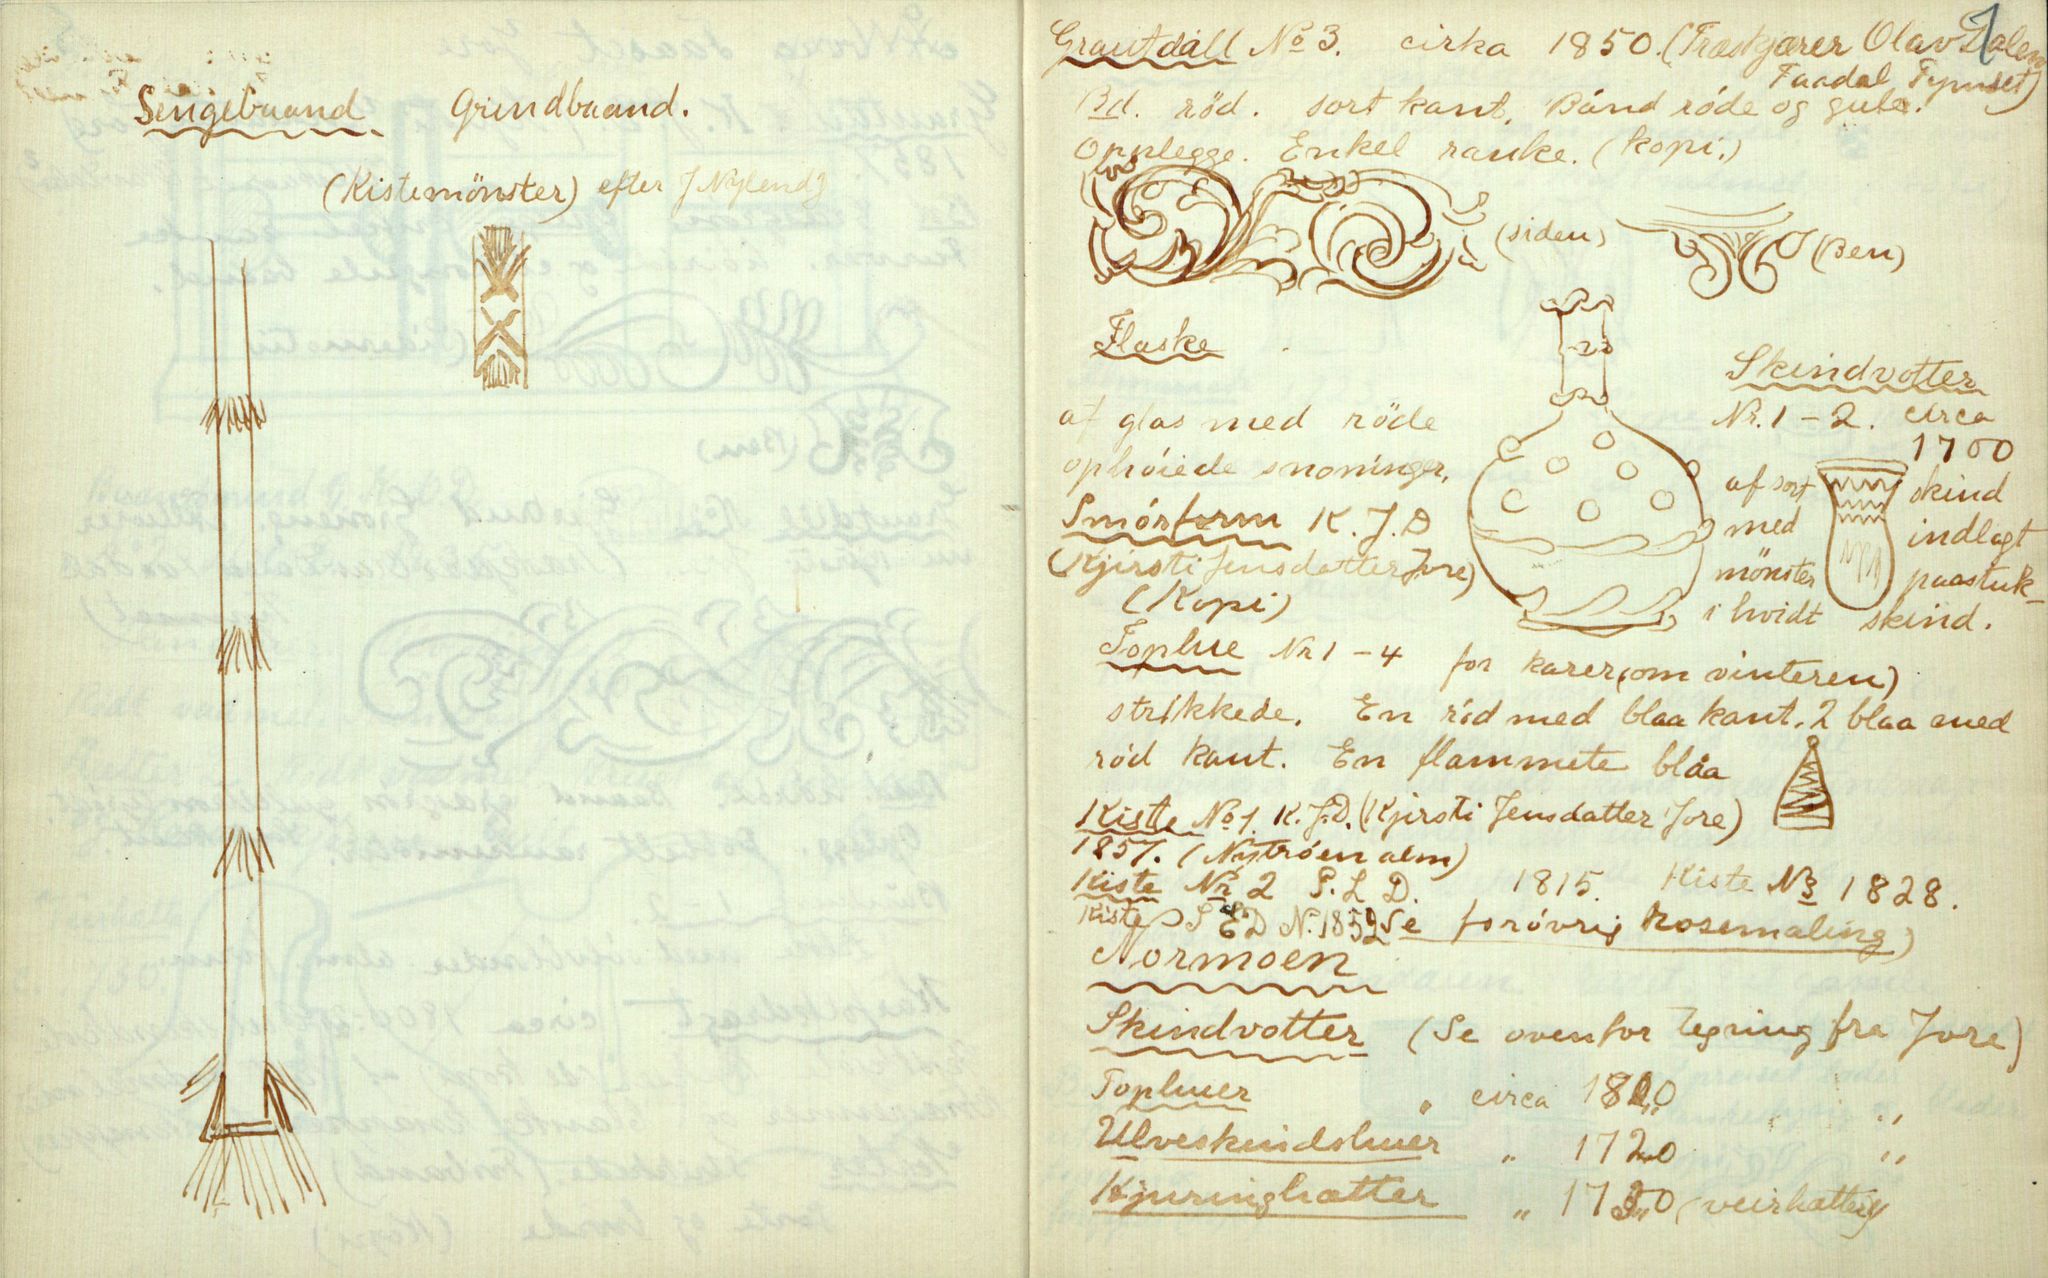 Sengebaand Grindbaand.
(Kistemönster) efter J Nylend
7
Grautdall No 3. cirka 1850. (Træskjærer Olav Dalen
Faadal Tynset)
Bd. röd. sort kant. Bånd röde og gule.
Opplegge. Enkel ranke. (kopi.)
(siden) (Ben)
Flaske
af glas med röde
ophöiede snoninger.
Skindvotter
Nr. 1 – 2. circa
1700
af sort skind
med indlagt
mönster paastuk-
i hvidt skind.
Smörform K. J. D
(Kjirsti Jensdatter Jore)
(Kopi)
Tophue Nr 1 – 4 for karer (om vinteren)
strikkede. En röd med blaa kant. 2 blaa med
röd kant. En flammete blåa
Kiste No 1. K. J. D. (Kjirsti Jensdatter Jore)
1857. (Nytröen alm)
Kiste Nr 2 P. L D. 1815. Kiste No 3 1828.
Kiste S E D N. 1852 Se forövrig Rosemaling)
Normoen
Skindvotter (Se ovenfor tegning fra Jore)
Tophuer " circa 1800 "
Ulveskindshuer " 1720 "
Kjuringhatter " 1750 (veirhatter)